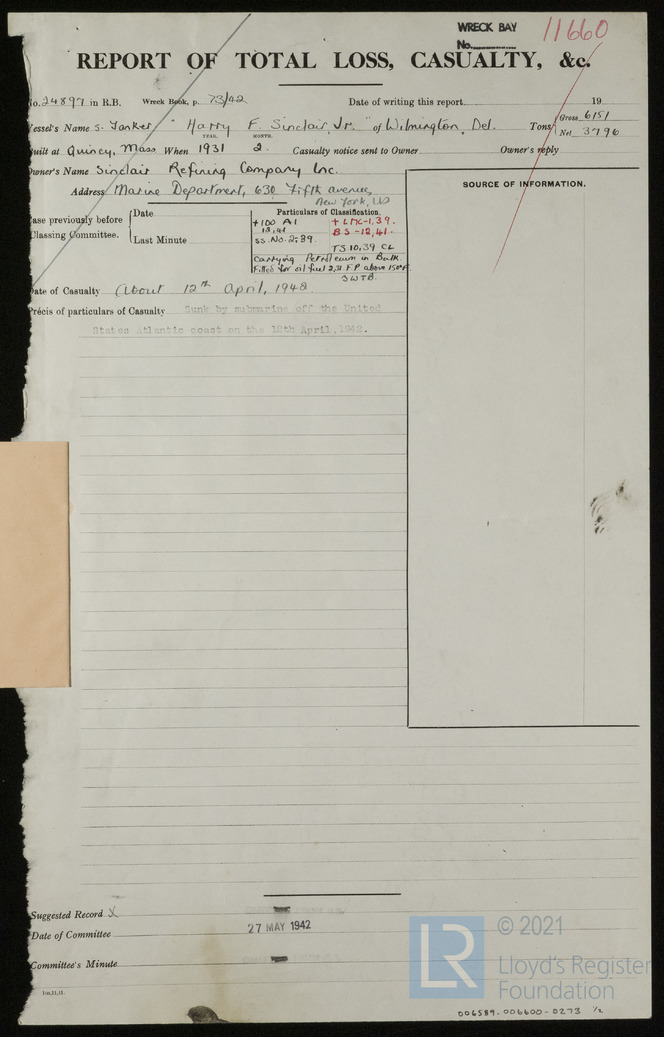 WRECK BAY 11660
No.
REPORT OF TOTAL LOSS, CASUALTY, &c.
No. 24897 in R.B. Wreck Book, p. 73/42 Date of writing this report 19
Vessel's Name S. Tanker "Harry F. Sinclair, Jr." of Wilmington, Del. Tons Gross 6151
Net 3796
YEAR. MONTH.
Built at Quincy, Mass When 1931 2. Casualty notice sent to Owner Owner's reply
Owner's Name Sinclair Refining Company Inc.
Address Marine Department, 630 Fifth avenue,
New York, US
SOURCE OF INFORMATION.
Case previously before
Classing Committee.
Date
Last Minute
Particulars of Classification.
+100 A1 +LMC-1,39.
12,41 BS-12,41.
SS.No.2-39.
TS 10,39 CL
Carrying Petroleum in Bulk.
Fitted for oil fuel 2,31 F.P. above 150°F.
3WTB.
Date of Casualty About 12th April, 1942.
Précis of particulars of Casualty Sunk by submarine off the United
States Atlantic coast on the 12th April, 1942.
Suggested Record X
Date of Committee 27 MAY 1942
Committee's Minute
1m,11,11.
LR © 2021
Lloyd's Register
Foundation
006589-006600-0273 1/2